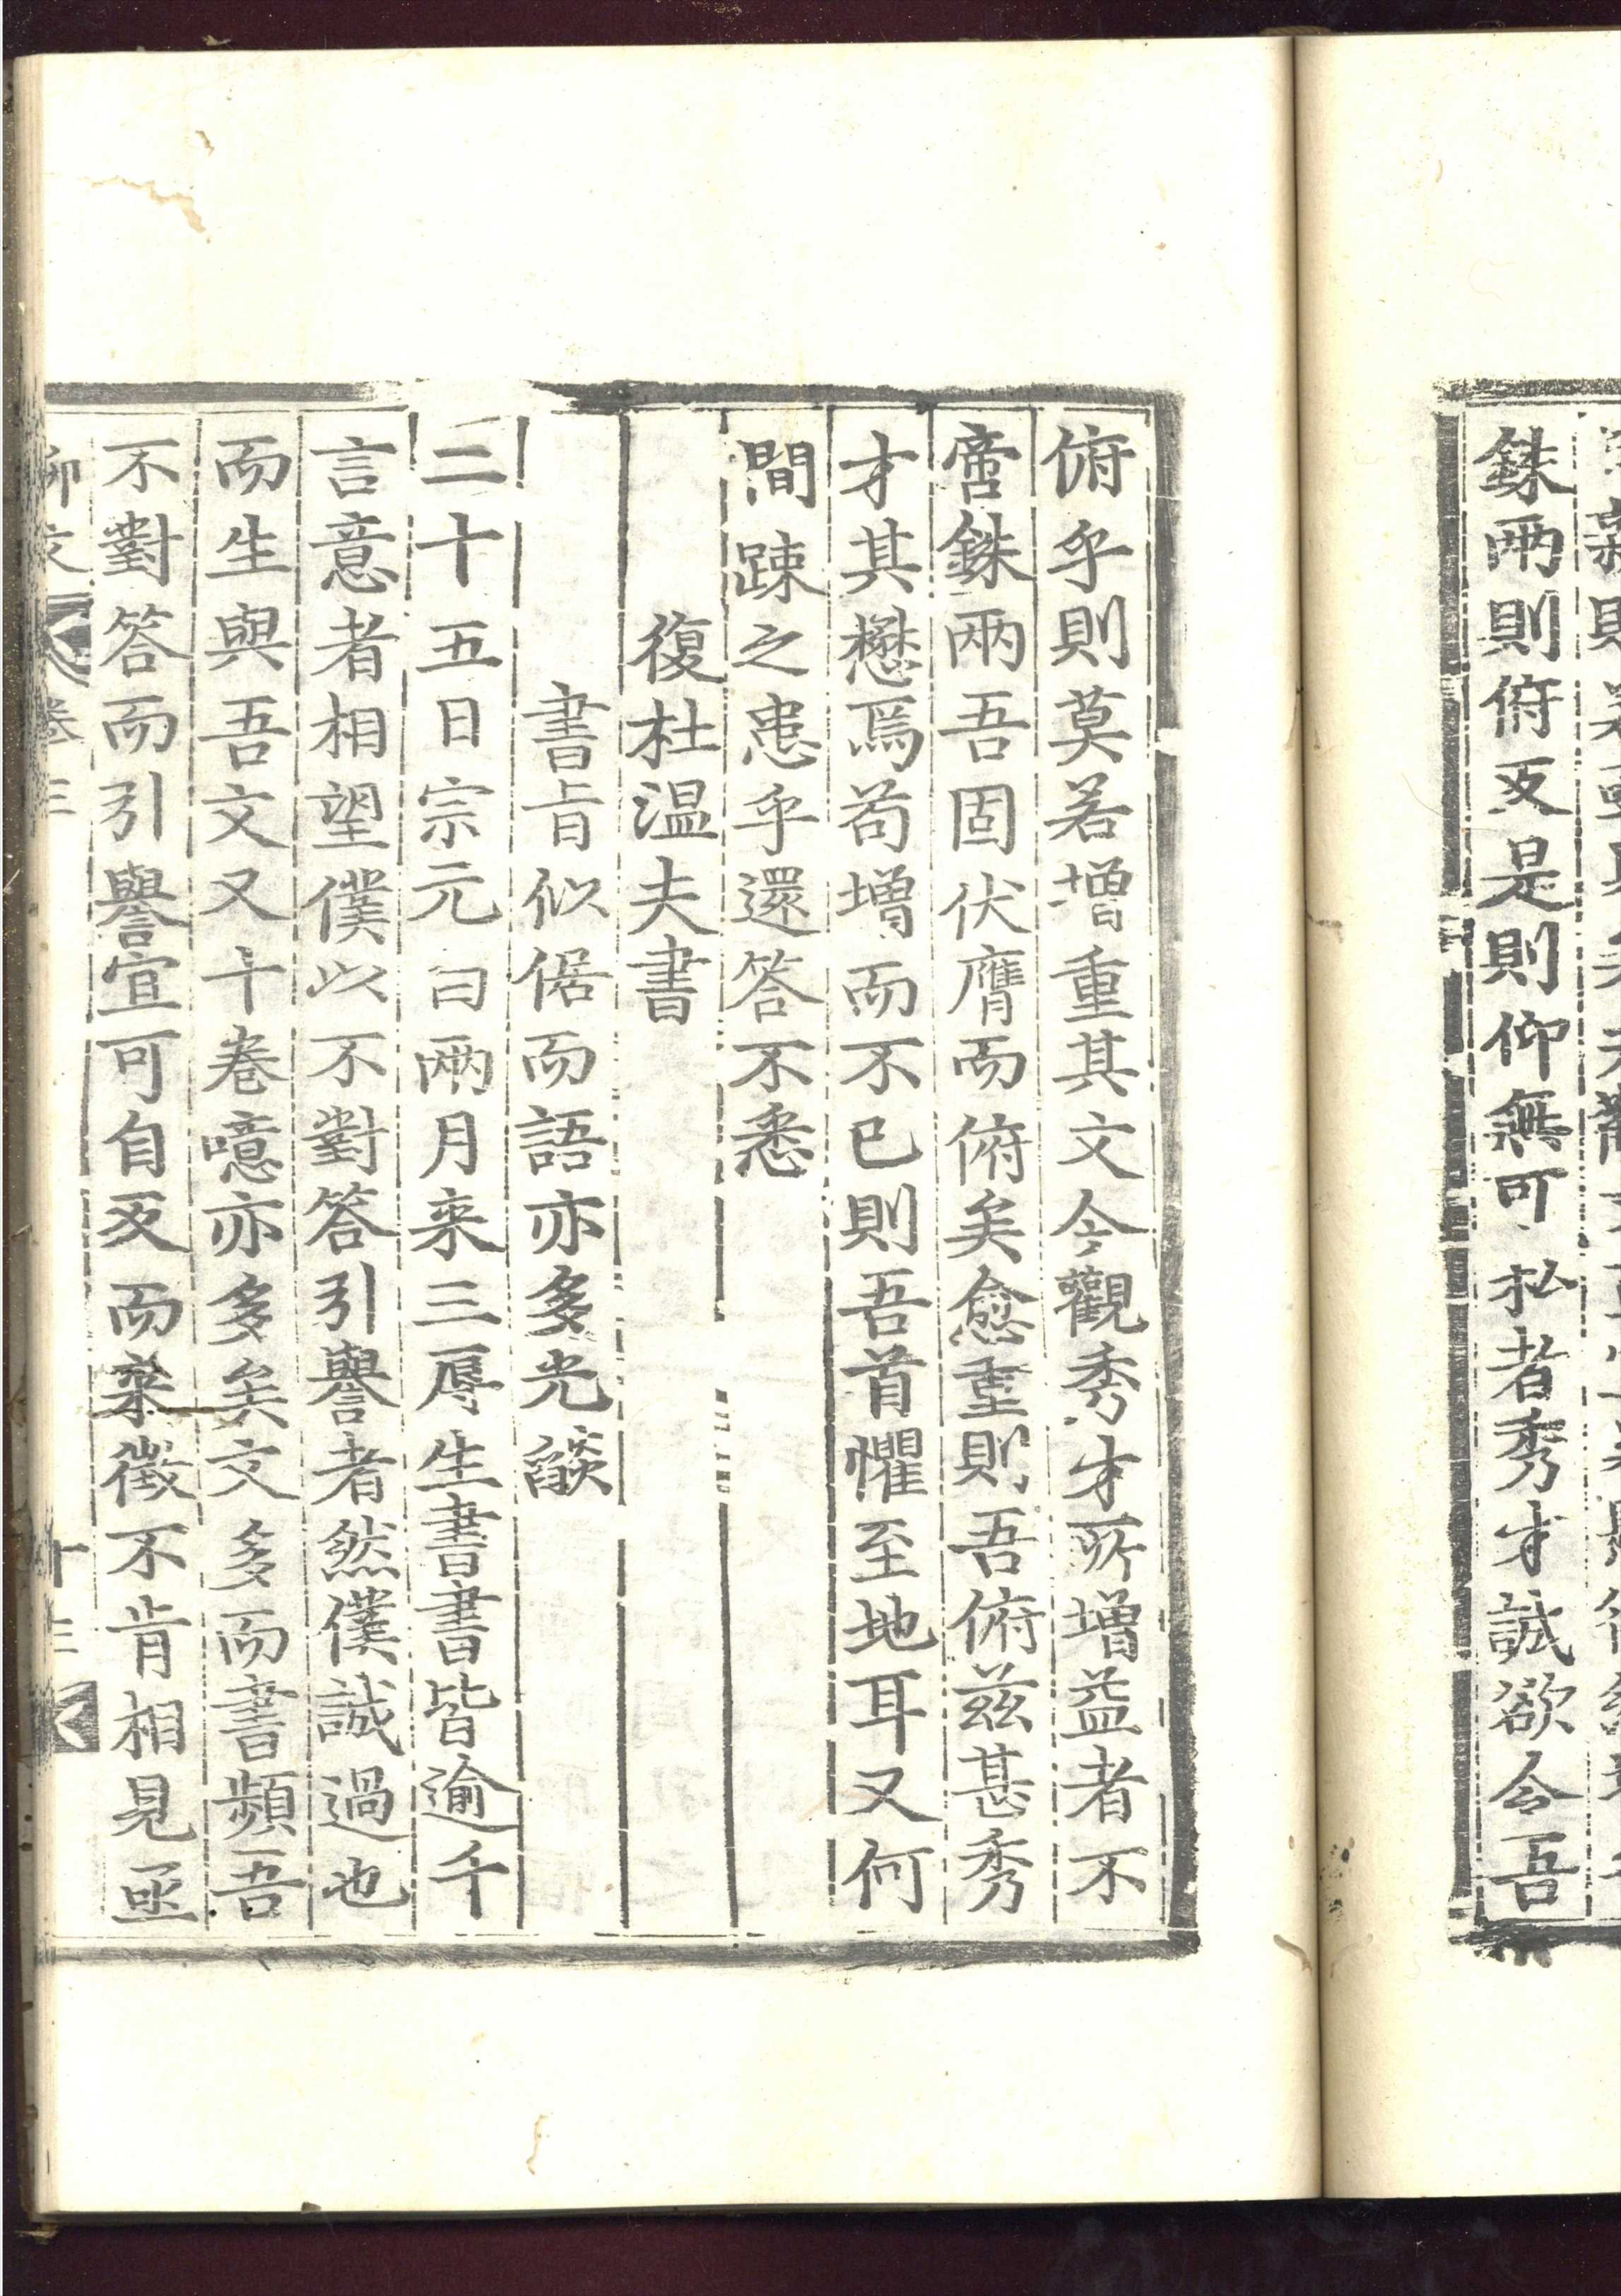 銖兩則俯反是則仰無可私者秀才誠欲令吾
俯乎則莫若增重其文今觀秀才所增益者不
啻銖兩吾固伏膺而俯矣愈重則吾俯兹甚秀
才其懋焉苟增而不已則吾首懼至地耳又何
間踈之患乎還答不悉
復杜温夫書
書㫖似倨而語亦多光燄
二十五日宗元白兩月来三辱生書書皆逾千
言意者相望僕以不對答引譽者然僕誠過也
而生與吾文又十卷噫亦多矣文多而書頻吾
不對答而引譽宜可自反而来徵不肯相見亟
柳文 卷三